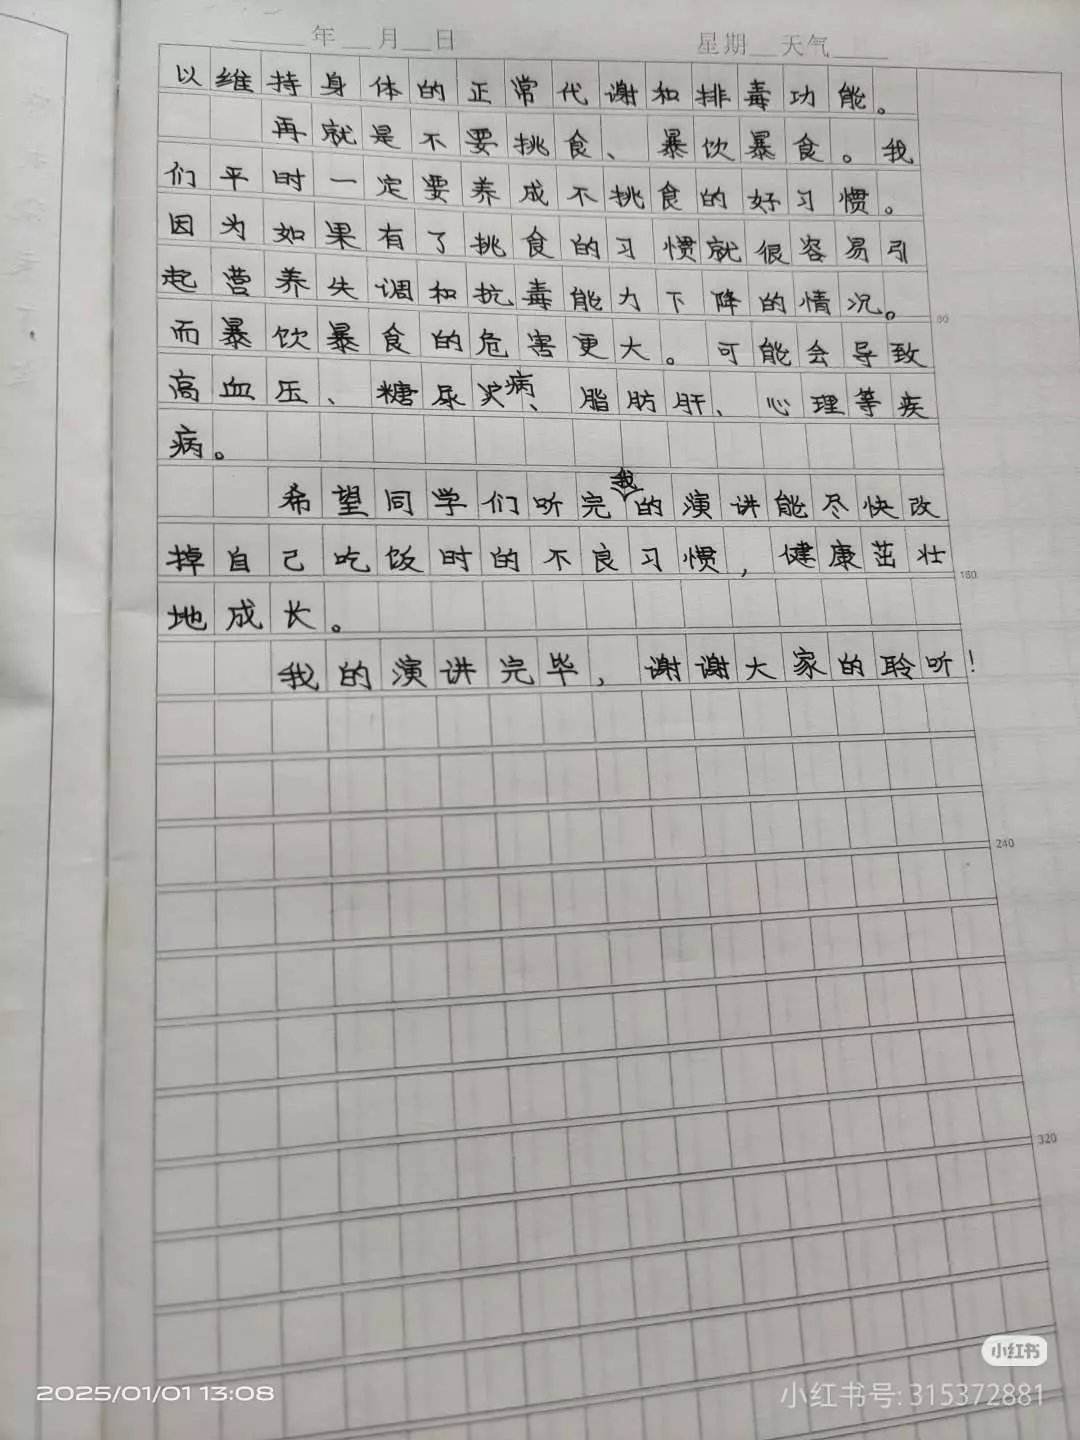 年 月 日 星期 天气
以维持身体的正常代谢和排毒功能。
再就是不要挑食、暴饮暴食。我
们平时一定要养成不挑食的好习惯。
因为如果有了挑食的习惯就很容易引
起营养失调和抗毒能力下降的情况。
80
而暴饮暴食的危害更大。可能会导致
高血压、糖尿病、脂肪肝、心理等疾
病。
希望同学们听完我的演讲能尽快改
掉自己吃饭时的不良习惯，健康茁壮
160
地成长。
我的演讲完毕，谢谢大家的聆听！
240
320
小红书
2025/01/01 13:08
小红书号: 315372881